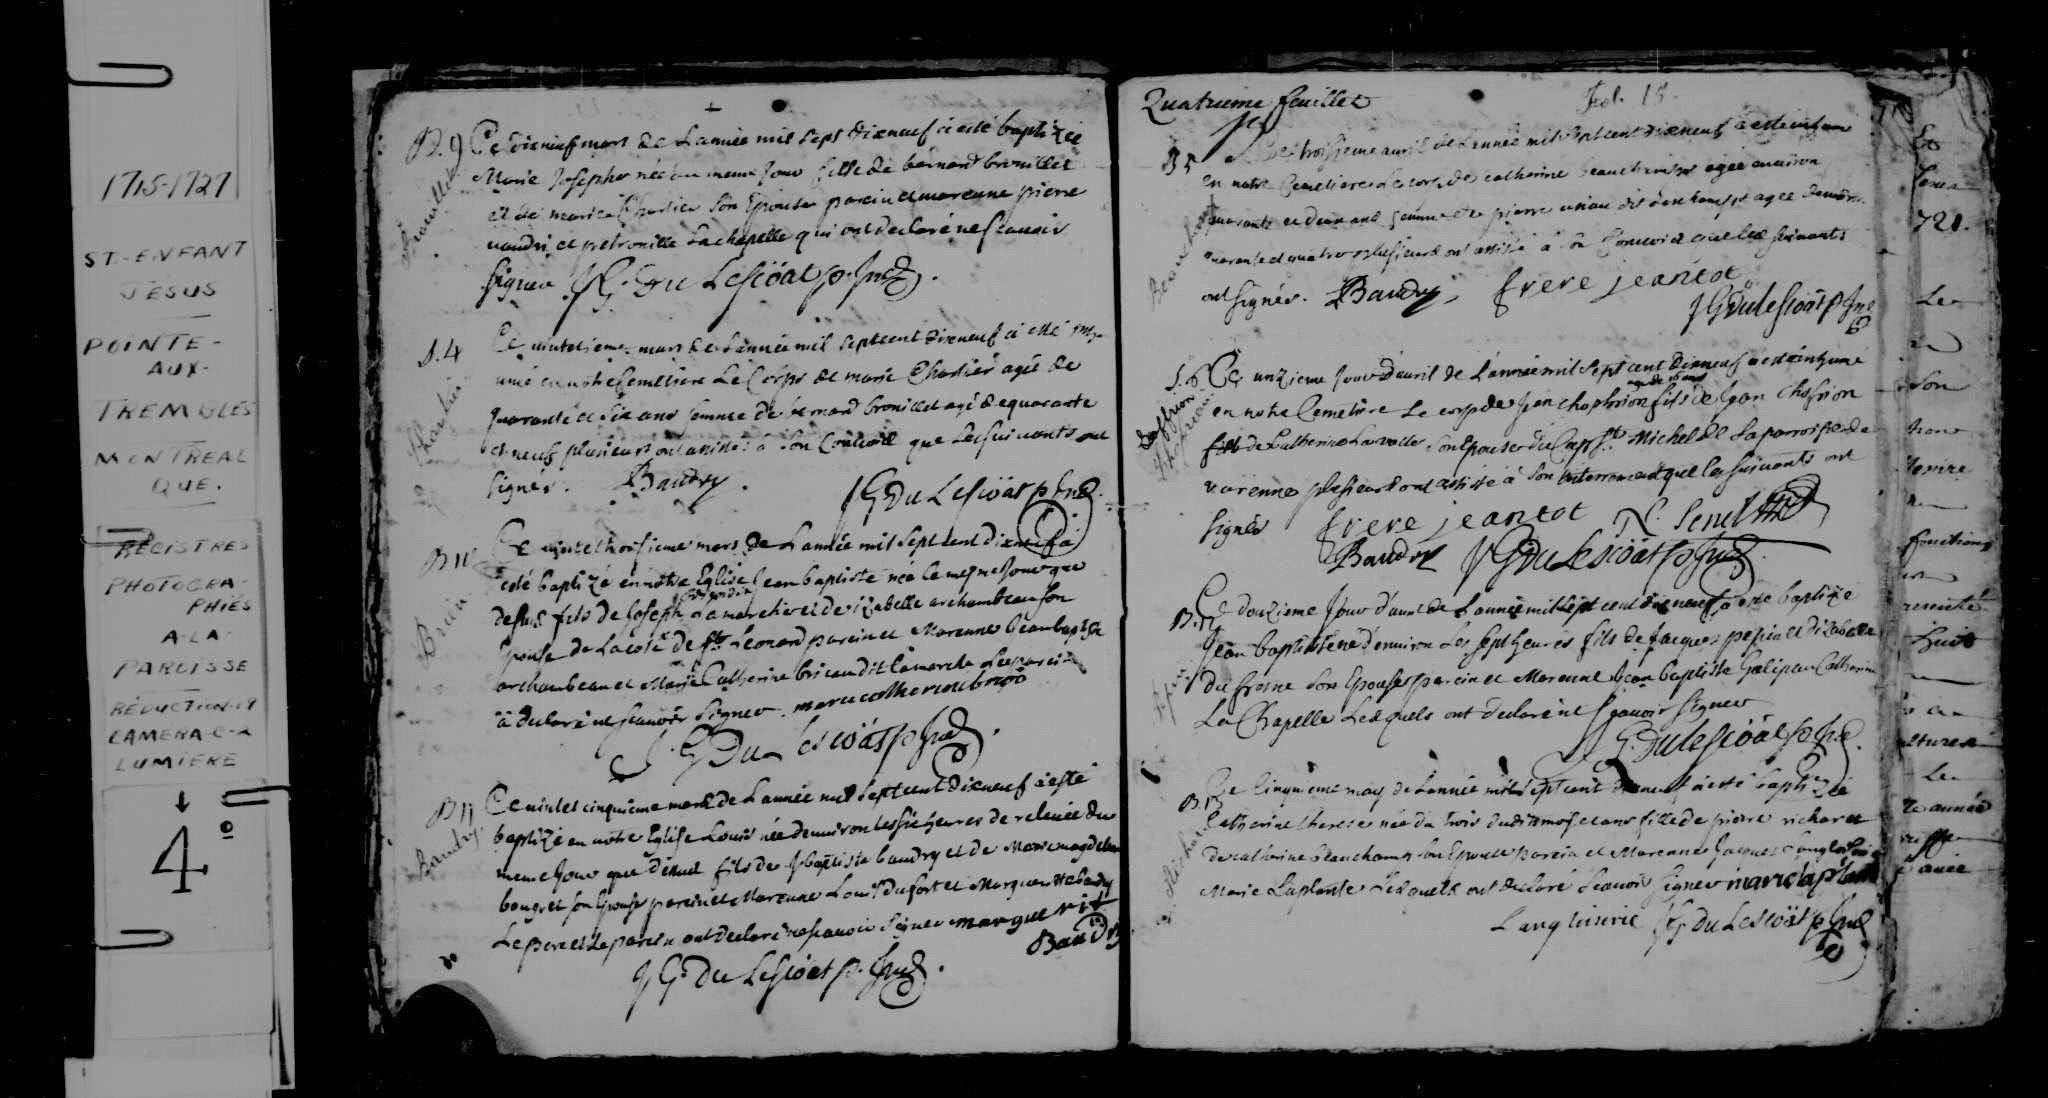 1715-1727
ST-ENFANT
JÉSUS
POINTE-
AUX-
TREMBLES
MONTREAL
QUE.
REGISTRES
PHOTOGRA-
PHIÉS
A-LA-
PAROISSE
RÉDUCTION-19
CAMERA-C-2
LUMIÈRE
4º
B. 9 Ce dixneuf mars de Lannée mil sept dixneuf a esté baptizée
Brouillet
Marie Josephe née du meme Jour fille de bernard brouillet
et de marie Chartier Son Epouse parein et mareine pierre
naudri et petronille Lachapelle qui ont declaré ne scavoir
signer J. G. Du Lescöat p. Jnd.
S. 4 Ce mars de Lannée mil septcent dixneuf a esté
Chartier
umé en notre Cemetiere Le Corps de marie Chartier agée de
quarante et six ans femme de bernard brouillet agé de quarante
et neuf plusieurs ont assisté à son que les suivants ont
signés. Baudry. J G Du Lescöat p Jnd.
B 10 Ce vint et troisieme mars de Lannée mil sept cent dixneuf a
Bricau
esté baptizé en notre Eglise Jean baptiste née le mesme Jour que
dessus fils de Joseph Lamarche et de izabelle archambeau son
Epouse de La coste de St Leonard parein et Marenne Jean baptiste
archambeau et Marie Catherine bricau dit Lamarche Le parein
a declaré ne scauoir signer. marie catherine brico
J. G Du Lescöat p Jnd.
B 11 Ce vint et cinquieme mars de Lannée mil septcent dixneuf a esté
Baudry.
baptizé en notre Eglise Louis née denuiron les six heures de releuée du
meme Jour que dessus fils de J baptiste baudry et de Marie magdelaine
bougret son Epouse parein et Marenne Louis Dufort et Marguerite baudry
Le pere et Le parein ont declaré ne scauoir signer marguerit
Baudry
J G. Du Lescöat p. Jnd.
Quatrieme feuillet
Fol. 15.
S 5 Ce troisieme auril de Lannée mil sept cent dixneuf a esté inhumé
Beauchamp
en notre Cemetiere Le corps de catherine beauchamps agée enuiron
quarante et deux ans femme de pierre dit deschamps agé denuiron
quarante et quatre plusieurs ont assisté à son que les suivants
ont signés. Baudry, frere jeantot
J G Du Lescöat p Jnd
S. 6 Ce unzieme Jour d'auril de Lannée mil sept cent dixneuf a esté inhumé
Joffrion
en notre Cemetiere Le corps de Jean chophrion fils de Jean Chofrion
agé de 16 ans
de Catherine Lavallee son Epouse du Cap St Michel de La parroisse de
varennes plusieurs ont assisté à son enterrement que les suivants ont
signés frere jeantot N. Senet
Baudry J G Du Lescöat p Jnd.
B. 12 Ce douzieme Jour d'auril de Lannée mil sept cent dixneuf a esté baptizé
Pepin
Jean baptiste né d'enuiron Les sept heures fils de Jacques pepin et dizabelle
du fresne son Epouse parein et Marenne Jean baptiste Galipeau Catherine
La Chapelle Lesquels ont declaré ne scauoir signer
J. G. Du Lescöat p. Jnd.
B. 13 Ce Cinquieme may de Lannée mil septcent dixneuf a esté baptizée
Richard
Catherine therese née du trois dudit mois et ans fille de pierre richard et
de catherine beauchamp son Epouse parein et Marenne Jacques Langloiserie
Marie Laplante Lesquels ont declaré scauoir signer marie laplante
Langloiserie J G Du Lescöat p Jnd
721.
Le
Son
fonctions
Le
année